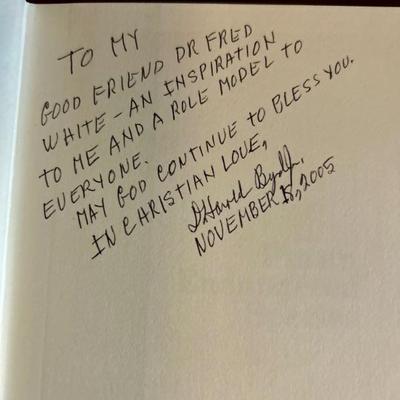 TO MY
GOOD FRIEND DR FRED
WHITE - AN INSPIRATION
TO ME AND A ROLE MODEL TO
EVERYONE.
MAY GOD CONTINUE TO BLESS YOU.
IN CHRISTIAN LOVE,
D. Harold Byrd, Jr.
NOVEMBER 15, 2005